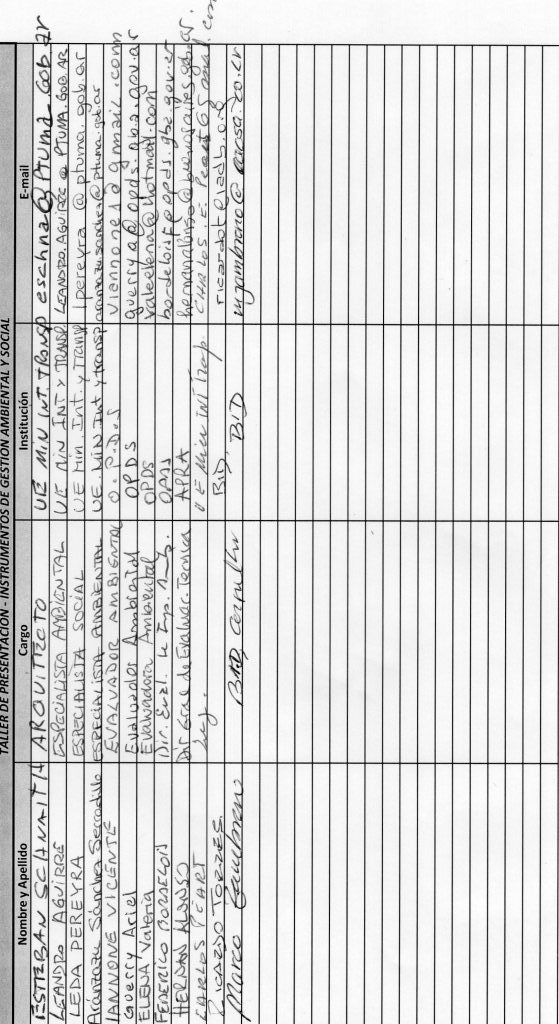 TALLER DE PRESENTACIÓN - INSTRUMENTOS DE GESTIÓN AMBIENTAL Y SOCIAL
Nombre y Apellido Cargo Institución E-mail
ESTEBAN SCHNAITH ARQUITECTO UE MIN INT. TRANSP eschnai@ptuma.gob.ar
LEANDRO AGUIRRE ESPECIALISTA AMBIENTAL UE MIN INT Y TRANSP LEANDRO.AGUIRRE@PTUMA.GOB.AR
LEDA PEREYRA ESPECIALISTA SOCIAL UE Min. Int. y Transp lpereyra@ptuma.gob.ar
Aranzazu Sánchez Serradillo ESPECIALISTA AMBIENTAL UE Min Int y transp aranzazu.sanchez@ptuma.gob.ar
IANNONE VICENTE EVALUADOR AMBIENTAL O.P.D.S viannone1@gmail.com
Guerry Ariel Evaluador Ambiental OPDS guerrya@opds.gba.gov.ar
ELENA Valeria Evaluadora Ambiental OPDS valeelena@hotmail.com
FEDERICO BORDELOIS Dir. Eval. OPDS bordeloisf@opds.gba.gov.ar
HERNAN ALONSO Dir Gral de Evaluac. Tecnica APRA hernanalonso@buenosaires.gob.ar
CARLOS PEART UE Min Int Trasp
RICARDO TORRES BID. ricardot@iadb.org
Marco Zambrano BID, Consultor BID mzambrano@